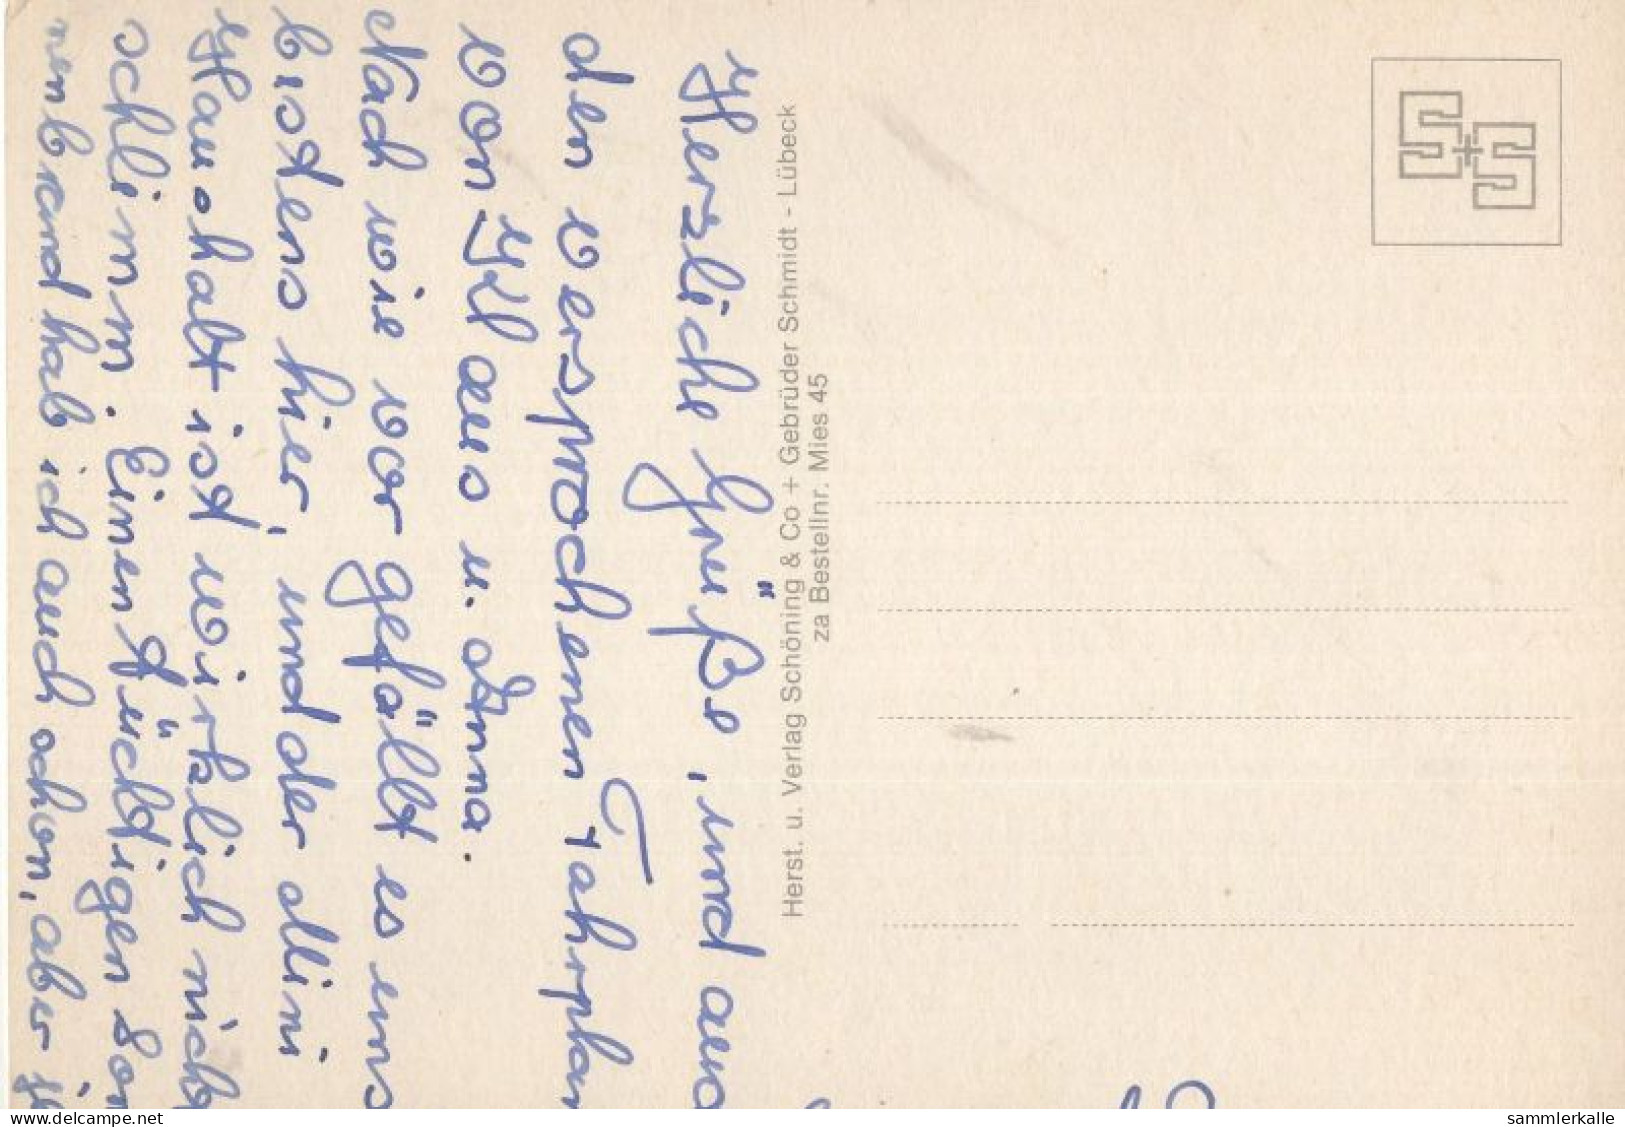 Herzliche Grüße, und auc
den versprochenen Fahrplan
von Klaus u. Anna.
Nach wie vor gefällt es uns
bestens hier, und der Mini
Haushalt ist wirklich nich
schlimm. Einen tüchtigen Son
nenbrand hab ich auch schon, aber
Herst. u. Verlag Schöning & Co + Gebrüder Schmidt - Lübeck
za Bestellnr. Mies 45
S+S
delcampe.net
sammlerkalle